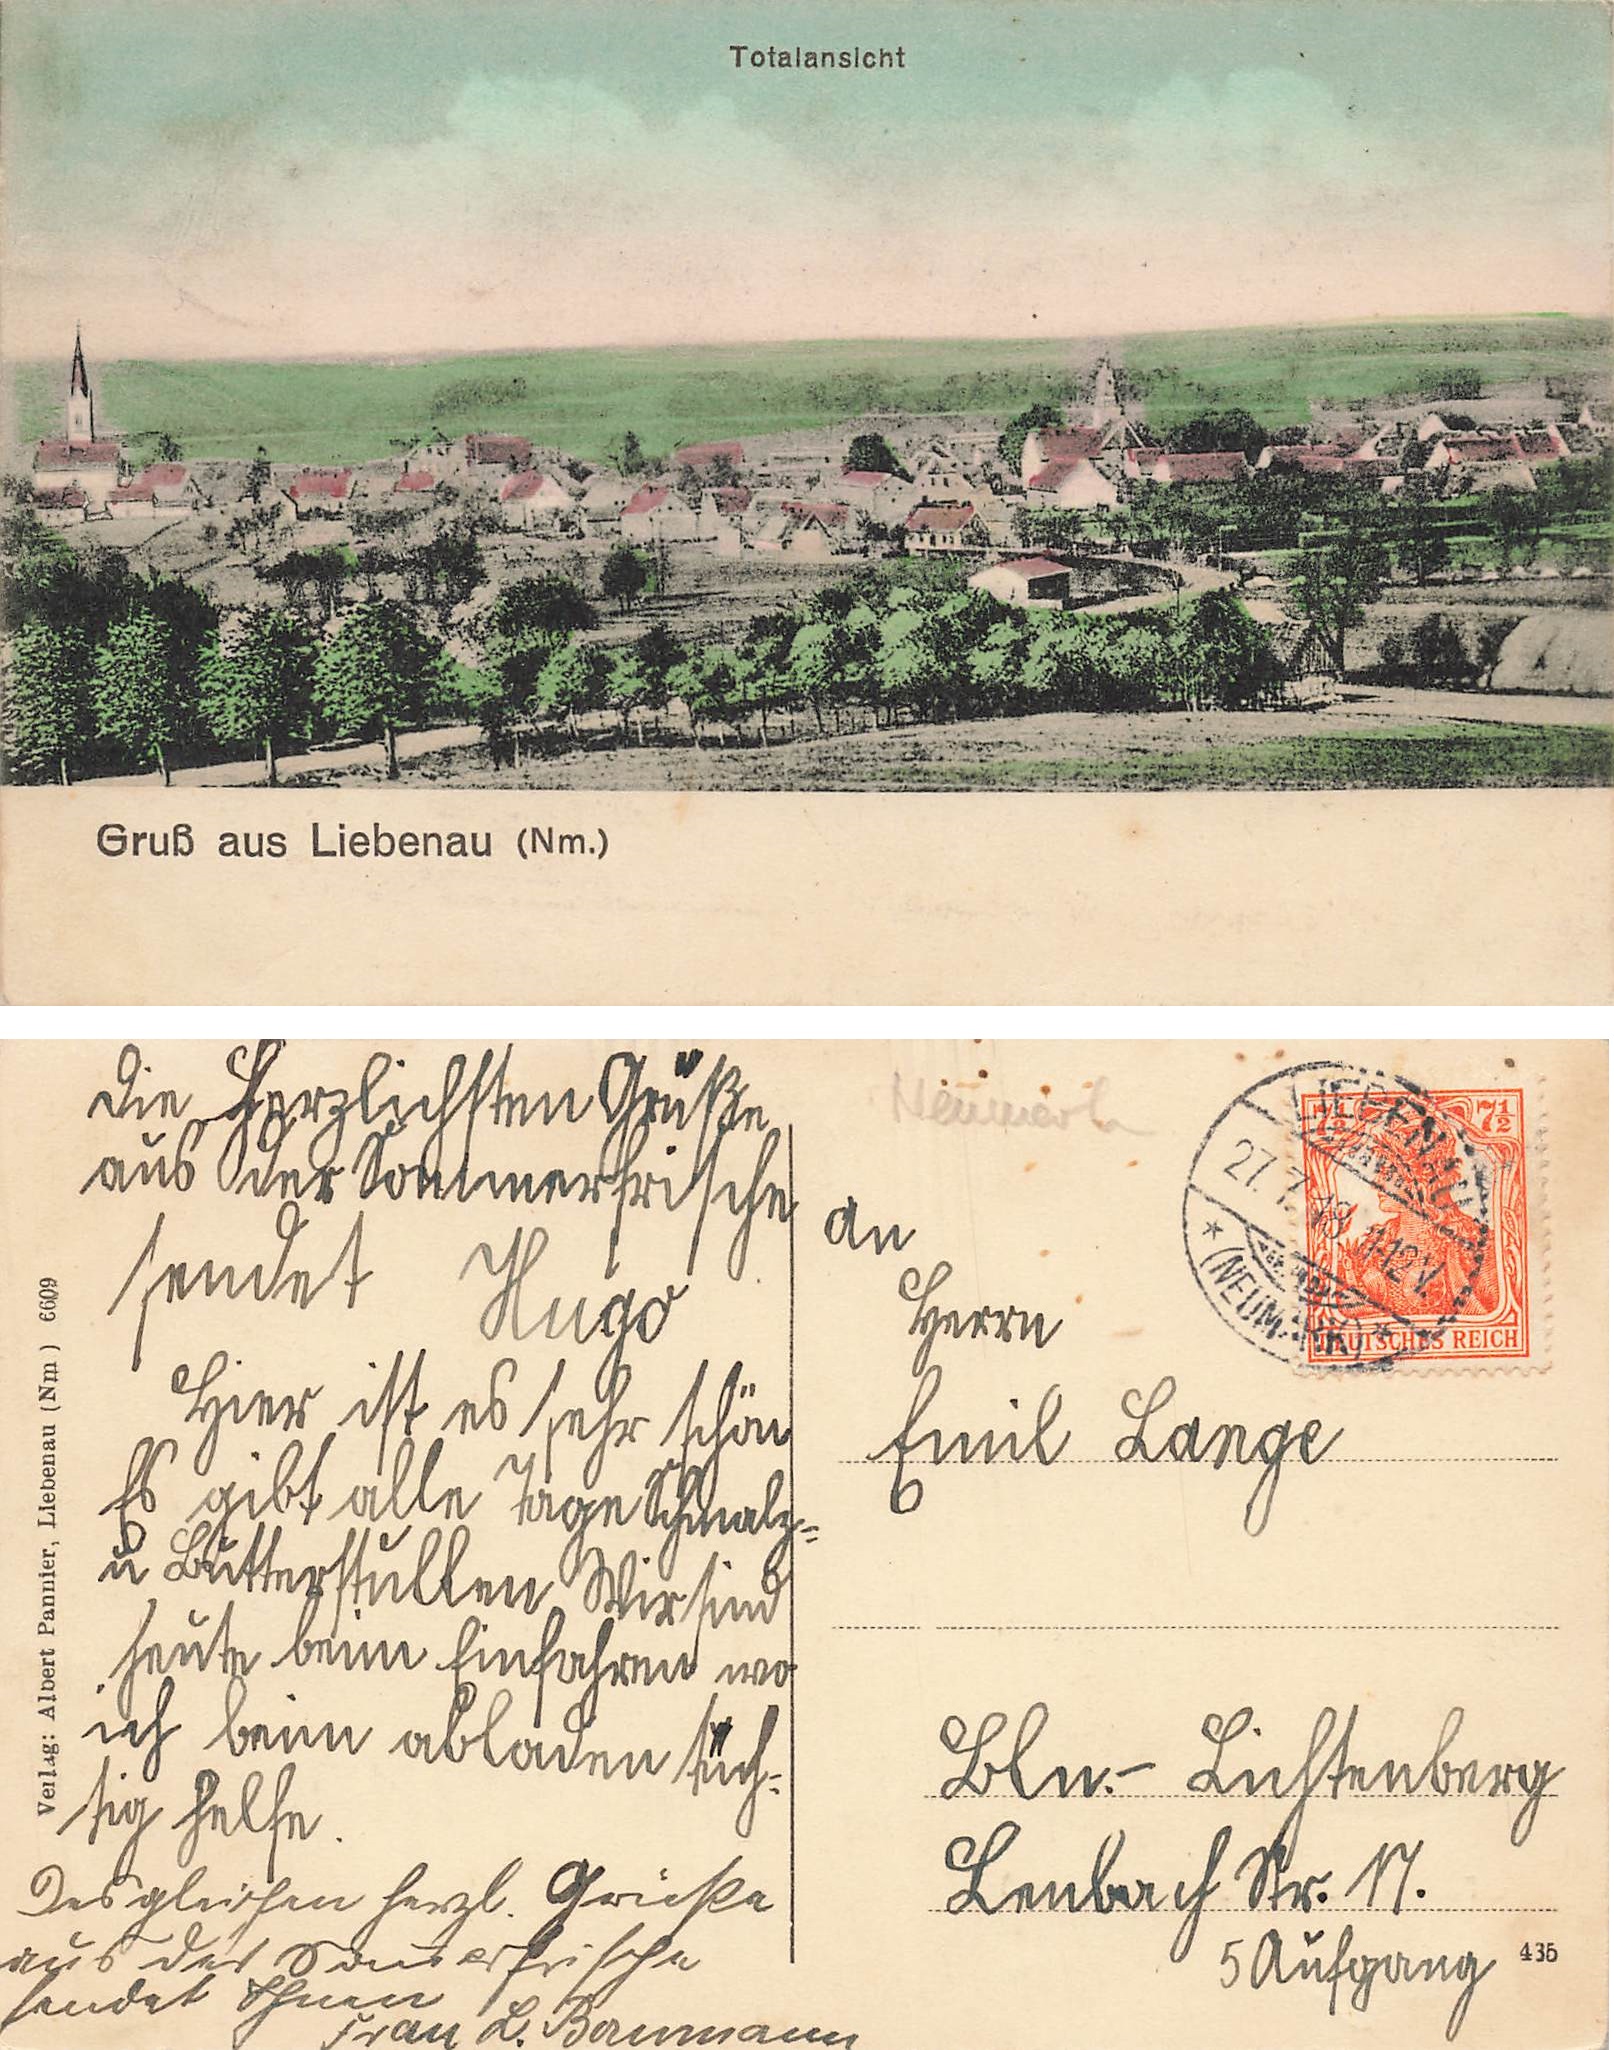 Totalansicht
Gruß aus Liebenau (Nm.)
Die Herzlichsten Grüße
aus der Sommerfrische
sendet Hugo
Hier ist es sehr schön
Es gibt alle Tage Schmalz=
u Butterstullen Wir sind
heute beim Einfahren wo
ich beim abladen tüch=
tig helfe.
Desgleichen herzl. Grüße
aus der Sommerfrische
sendet Ihnen
Frau L. Baumann
Verlag: Albert Pannier, Liebenau (Nm) 6609
LIEBENAU
27.7.18 11-12V.
* (NEUMARK) *
7½ 7½
DEUTSCHES REICH
An
Herrn
Emil Lange
Bln.- Lichtenberg
Lenbach Str. 17.
5 Aufgang
435